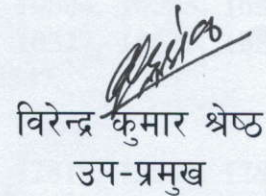 विरेन्द्र कुमार श्रेष्ठ
उप-प्रमुख